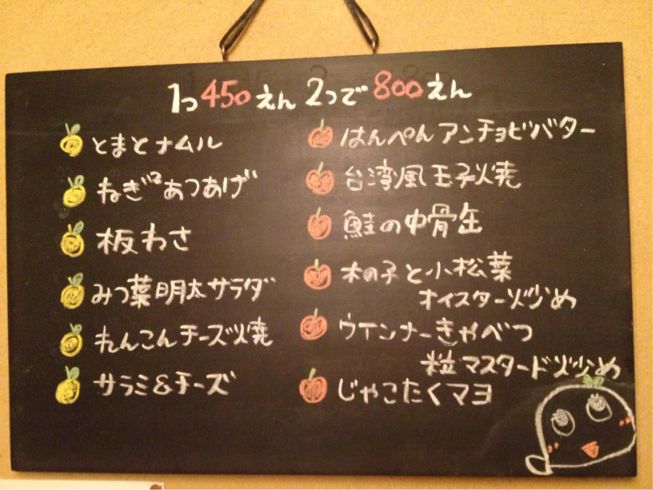 1つ450えん 2つで800えん
とまとナムル
ねぎ²あつあげ
板わさ
みつ葉明太サラダ
れんこんチーズ焼
サラミ&チーズ
はんぺんアンチョビバター
台湾風玉子焼
鮭の中骨缶
木の子と小松菜
オイスター炒め
ウインナーきゃべつ
粒マスタード炒め
じゃこたくマヨ